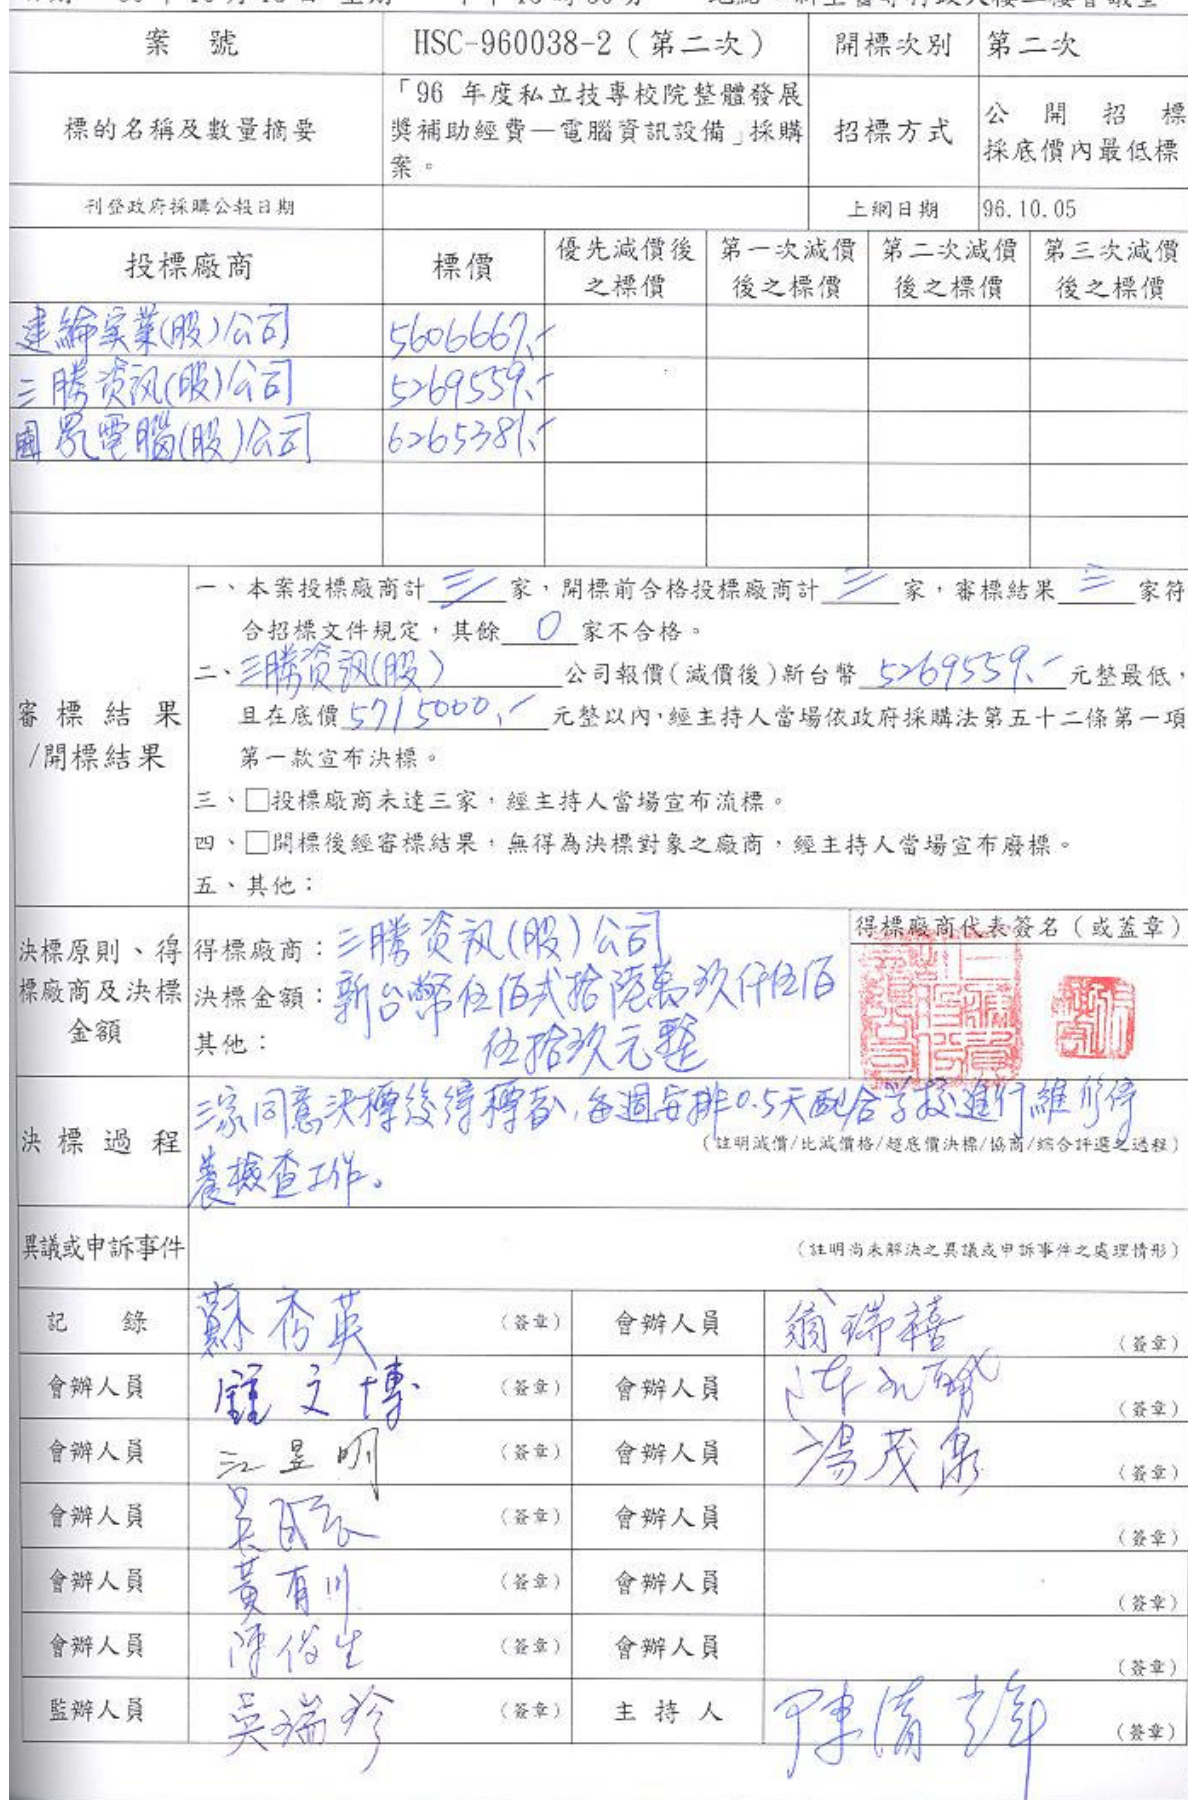 案 號 HSC-960038-2（第二次） 開標次別 第二次
標的名稱及數量摘要 「96 年度私立技專校院整體發展獎補助經費—電腦資訊設備」採購案。 招標方式 公開招標 採底價內最低標
刊登政府採購公報日期 上網日期 96.10.05
投標廠商 標價 優先減價後之標價 第一次減價後之標價 第二次減價後之標價 第三次減價後之標價
建綸実業(股)公司 5606667.-
三勝资訊(股)公司 5269559.-
國眾電腦(股)公司 6265381.-
審標結果/開標結果
一、本案投標廠商計 三 家，開標前合格投標廠商計 三 家，審標結果 三 家符
合招標文件規定，其餘 0 家不合格。
二、三勝资訊(股) 公司報價(減價後)新台幣 5269559.- 元整最低，
且在底價 5715000.- 元整以內，經主持人當場依政府採購法第五十二條第一項
第一款宣布決標。
三、□投標廠商未達三家，經主持人當場宣布流標。
四、□開標後經審標結果，無得為決標對象之廠商，經主持人當場宣布廢標。
五、其他：
決標原則、得標廠商及決標金額
得標廠商代表簽名（或蓋章）
得標廠商：三勝资訊(股)公司
決標金額：新台幣伍佰弍拾陸萬玖仟伍佰
其他： 伍拾玖元整
決標過程
三家同意決標後得標者，每週安排0.5天配合学校進行維修保
（註明減價/比減價格/超底價決標/協商/綜合評選之過程）
養檢查工作。
異議或申訴事件 （註明尚未解決之異議或申訴事件之處理情形）
記 錄 蘇秀英 （簽章） 會辦人員 翁瑞禧 （簽章）
會辦人員 鍾文博 （簽章） 會辦人員 （簽章）
會辦人員 江昱明 （簽章） 會辦人員 湯茂泉 （簽章）
會辦人員 （簽章） 會辦人員 （簽章）
會辦人員 黃有川 （簽章） 會辦人員 （簽章）
會辦人員 陳俊生 （簽章） 會辦人員 （簽章）
監辦人員 吳瑞珍 （簽章） 主 持 人 （簽章）